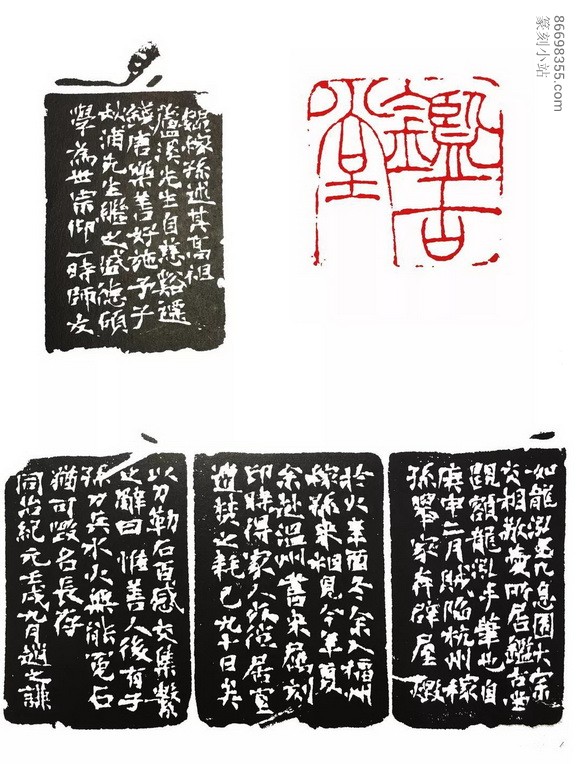 篆刻小站
86698355.com
鑑古堂
稼孫述其高祖
廬溪先生自慈谿遷
錢唐樂善好施予子
秋浦先生繼之盛德碩
學為世宗仰一時師友
如龍泓息園大宗
交相敬愛所居鑑古堂
題額龍泓手筆也自
庚申二月賊陷杭州稼
孫舉家奔辟屋燬
於火辛酉冬余入福州
稼孫來相見今年夏
余赴溫州書來屬刻
印時得家人居室
遭焚之耗已九十日矣
以刀勒石百感交集繫
之辭曰惟善人後有子
孫刀兵水火無能冤石
猶可毀名長存
同治紀元壬戌九月趙之謙